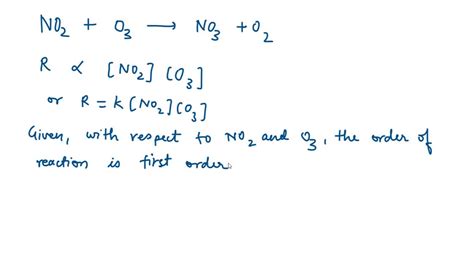 NO₂ + O₃ ⟶ NO₃ + O₂
R ∝ [NO₂] [O₃]
or R = k [NO₂] [O₃]
Given, with respect to NO₂ and O₃, the order of
reaction is first order.